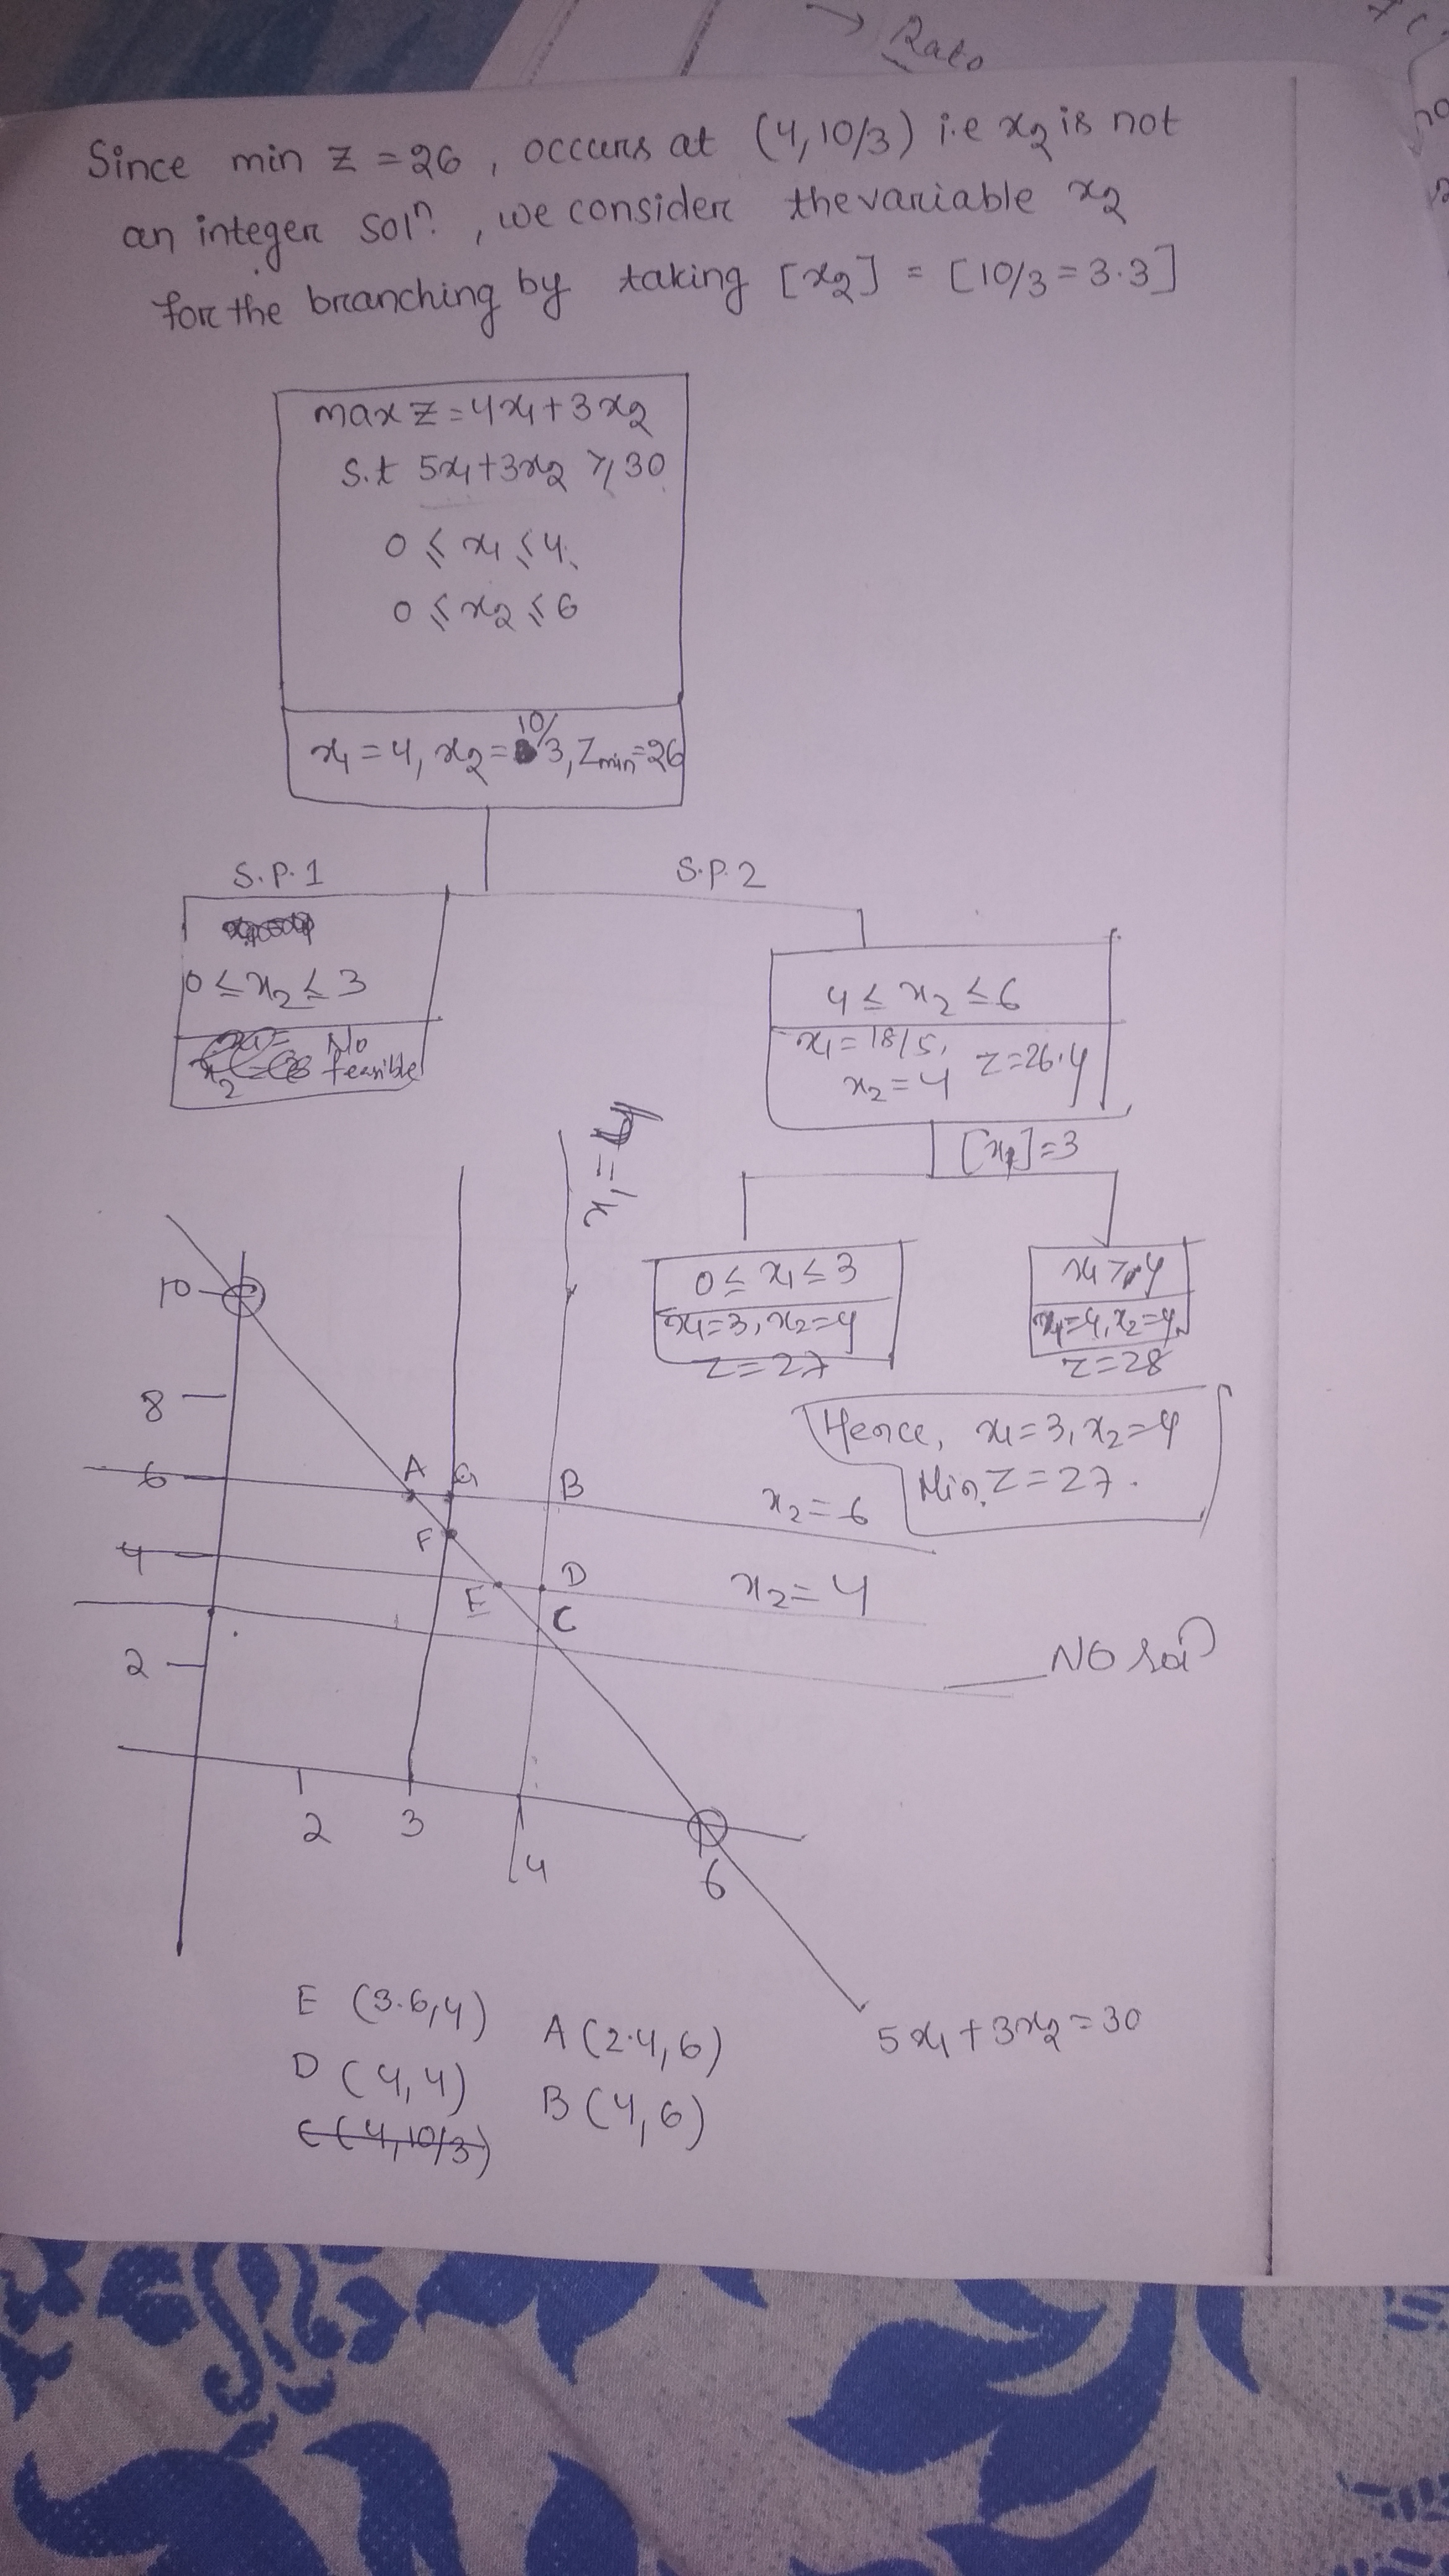 → Rato
Since min Z = 26, occurs at (4, 10/3) i.e x2 is not
an integer solⁿ., we consider the variable x2
for the branching by taking [x2] = [10/3 = 3.3]
max Z = 4x1 + 3x2
S.t 5x1 + 3x2 ≥ 30
0 ≤ x1 ≤ 4
0 ≤ x2 ≤ 6
x1 = 4, x2 = 10/3, Zmin = 26
S.P.1
S.P.2
0 ≤ x2 ≤ 3
No feasible
4 ≤ x2 ≤ 6
x1 = 18/5,
x2 = 4
Z = 26.4
[x1] = 3
0 ≤ x1 ≤ 3
x1 = 3, x2 = 4
Z = 27
x1 ≥ 4
x1 = 4, x2 = 4
Z = 28
Hence, x1 = 3, x2 = 4
Min. Z = 27.
x1 = 4
10
8
6
4
2
A
G
B
F
E
D
C
x2 = 6
x2 = 4
NO solⁿ
2
3
4
6
5x1 + 3x2 = 30
E (3.6, 4)
A (2.4, 6)
D (4, 4)
B (4, 6)
C (4, 10/3)